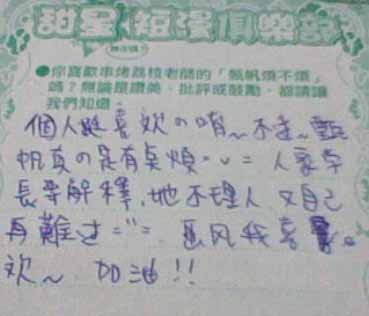 甜星短漫俱樂部
●你喜歡串烤荔枝老師的「甄帆煩不煩」
嗎？無論是讚美、批評或鼓勵，都請讓
我們知道。
個人是喜欢の唷～不过～甄
帆真の是有臭煩。v= 人家學
長要解釋，她不理人又自己
再難过="= 画风我喜
欢～ 加油！！